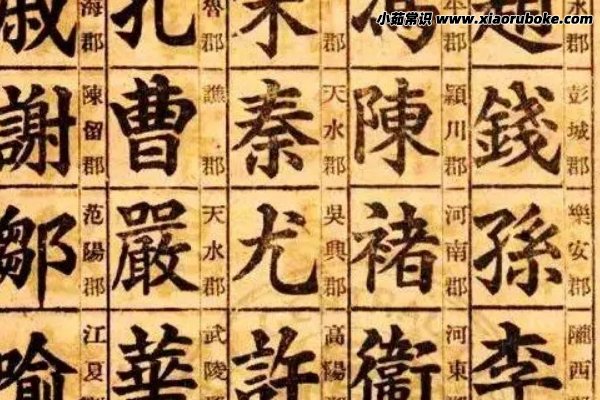 小茹常识 www.xiaoruboke.com
趙
水郡
錢
彭城郡
孫
樂安郡
李
隴西
郡
陳
潁川郡
褚
河南郡
衛
河東郡
郡
秦
天水郡
尤
吳興郡
許
高陽郡
孔
魯郡
曹
譙郡
嚴
天水郡
華
武陵郡
戚
海郡
謝
陳留郡
鄒
范陽郡
喻
江夏郡